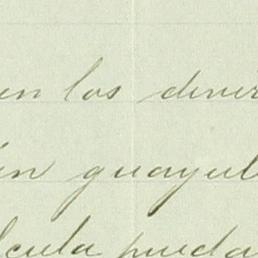 en los diner
in guayul
lcula pueda